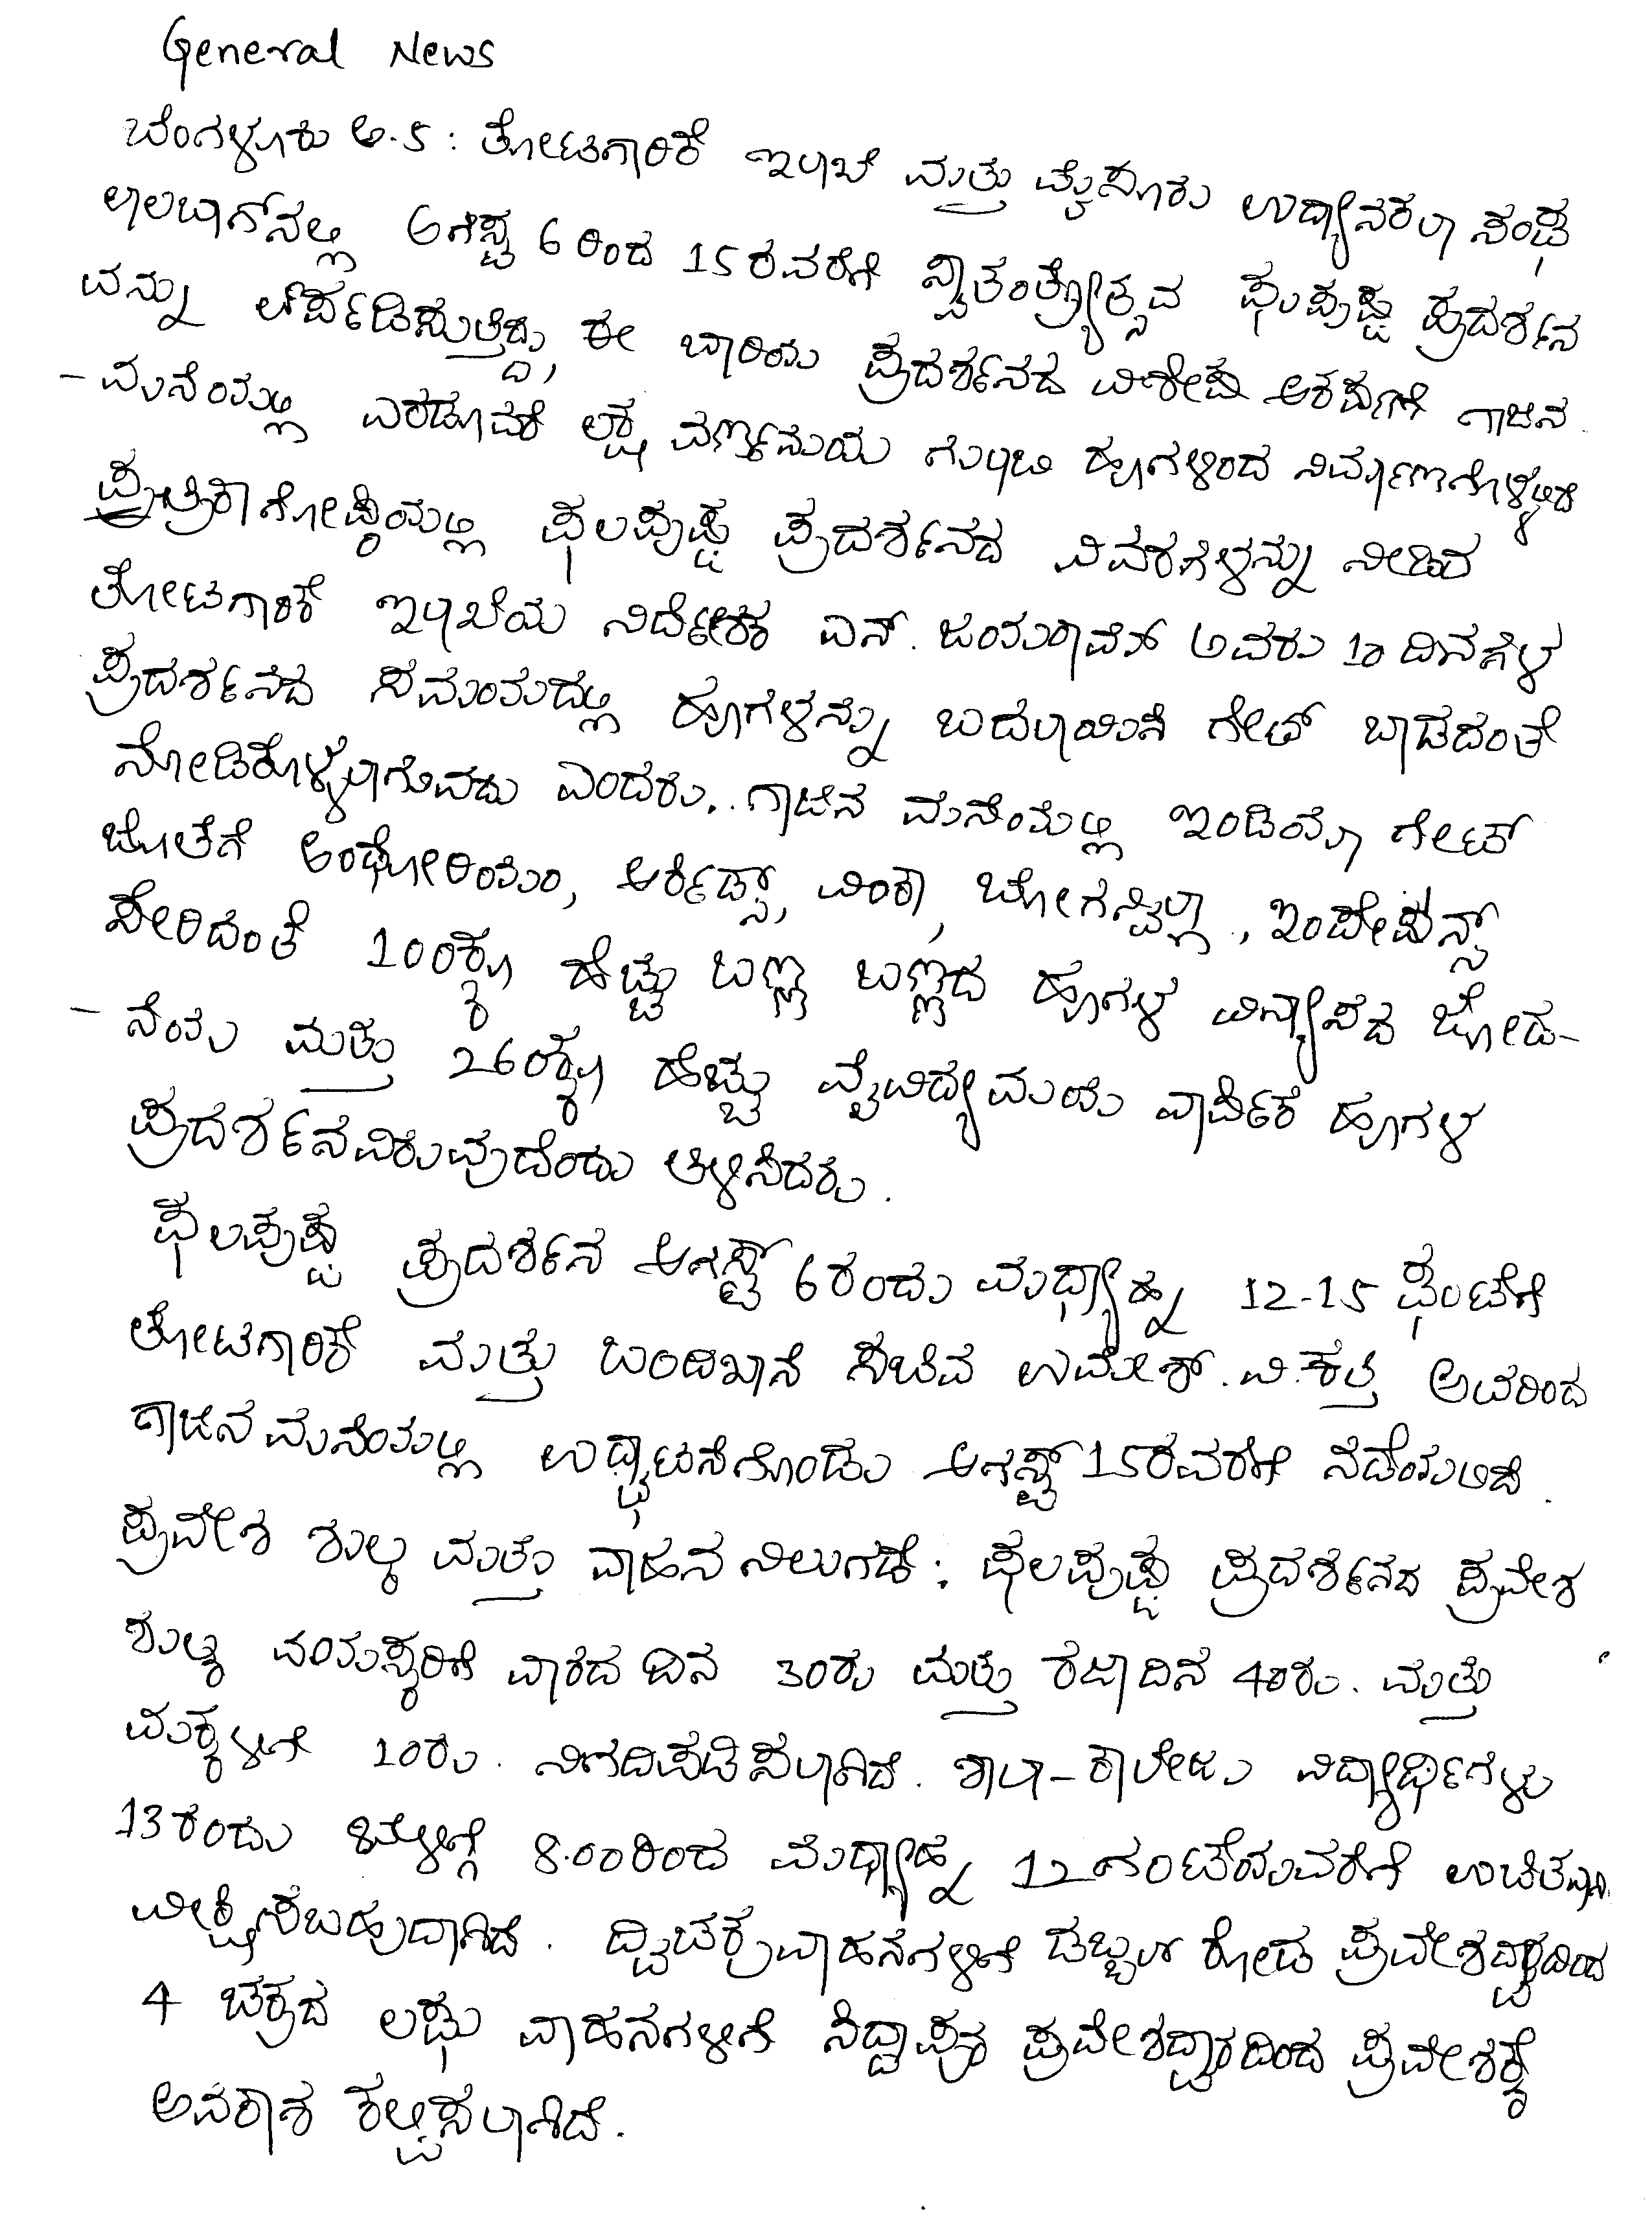 General News
ಬೆಂಗಳೂರು ಆ.5: ತೋಟಗಾರಿಕೆ ಇಲಾಖೆ ಮತ್ತು ಮೈಸೂರು ಉದ್ಯಾನಕಲಾ ಸಂಘ
ಲಾಲಬಾಗ್‌ನಲ್ಲಿ ಆಗಸ್ಟ 6 ರಿಂದ 15 ರವರೆಗೆ ಸ್ವಾತಂತ್ರ್ಯೋತ್ಸವ ಫಲಪುಷ್ಪ ಪ್ರದರ್ಶನ
ವನ್ನು ಏರ್ಪಡಿಸುತ್ತಿದ್ದು, ಈ ಬಾರಿಯ ಪ್ರದರ್ಶನದ ವಿಶೇಷ ಆಕರ್ಷಣೆ ಗಾಜಿನ
- ಮನೆಯಲ್ಲಿ ಎರಡೂವರೆ ಲಕ್ಷ ವರ್ಣಮಯ ಗುಲಾಬಿ ಹೂಗಳಿಂದ ನಿರ್ಮಾಣಗೊಳ್ಳಲಿದೆ
ಪತ್ರಿಕಾಗೋಷ್ಠಿಯಲ್ಲಿ ಫಲಪುಷ್ಪ ಪ್ರದರ್ಶನದ ವಿವರಗಳನ್ನು ನೀಡಿದ
ತೋಟಗಾರಿಕೆ ಇಲಾಖೆಯ ನಿರ್ದೇಶಕ ಎಸ್. ಜಯರಾಮ್ ಅವರು 10 ದಿನಗಳ
ಪ್ರದರ್ಶನದ ಸಮಯದಲ್ಲಿ ಹೂಗಳನ್ನು ಬದಲಾಯಿಸಿ ಗೇಟ್ ಬಾಡದಂತೆ
ನೋಡಿಕೊಳ್ಳಲಾಗುವದು ಎಂದರು.. ಗಾಜಿನ ಮನೆಯಲ್ಲಿ ಇಂಡಿಯಾ ಗೇಟ್
ಜೊತೆಗೆ ಆಂಥೋರಿಯಂ, ಆರ್ಕಿಡ್ಸ್, ವಿಂಕಾ, ಬೋಗನ್ವಿಲ್ಲಾ, ಇಂಪೇಷನ್ಸ್
ಸೇರಿದಂತೆ 100ಕ್ಕೂ ಹೆಚ್ಚು ಬಣ್ಣ ಬಣ್ಣದ ಹೂಗಳ ವಿನ್ಯಾಸದ ಜೋಡ-
- ನೆಯು ಮತ್ತು 260ಕ್ಕೂ ಹೆಚ್ಚು ವೈವಿದ್ಯಮಯ ವಾರ್ಷಿಕ ಹೂಗಳ
ಪ್ರದರ್ಶನವಿರುವುದೆಂದು ತಿಳಿಸಿದರು.
ಫಲಪುಷ್ಪ ಪ್ರದರ್ಶನ ಆಗಸ್ಟ್ 6 ರಂದು ಮಧ್ಯಾಹ್ನ 12-15 ಘಂಟೆಗೆ
ತೋಟಗಾರಿಕೆ ಮತ್ತು ಬಂದಿಖಾನೆ ಸಚಿವ ಉಮೇಶ್. ವಿ.ಕತ್ತಿ ಅವರಿಂದ
ಗಾಜಿನ ಮನೆಯಲ್ಲಿ ಉದ್ಘಾಟನೆಗೊಂಡು ಆಗಸ್ಟ್ 15ರವರೆಗೆ ನಡೆಯಲಿದೆ.
ಪ್ರವೇಶ ಶುಲ್ಕ ಮತ್ತು ವಾಹನ ನಿಲುಗಡೆ: ಫಲಪುಷ್ಪ ಪ್ರದರ್ಶನದ ಪ್ರವೇಶ
ಶುಲ್ಕ ವಯಸ್ಕರಿಗೆ ವಾರದ ದಿನ 30ರು ಮತ್ತು ರಜಾ ದಿನ 40ರು. ಮತ್ತು
ಮಕ್ಕಳಿಗೆ 10ರು. ನಿಗದಿಪಡಿಸಲಾಗಿದೆ. ಶಾಲಾ-ಕಾಲೇಜು ವಿದ್ಯಾರ್ಥಿಗಳು
13 ರಂದು ಬೆಳಿಗ್ಗೆ 8.00ರಿಂದ ಮಧ್ಯಾಹ್ನ 12 ಗಂಟೆಯವರೆಗೆ ಉಚಿತವಾಗಿ
ವೀಕ್ಷಿಸಬಹುದಾಗಿದೆ. ದ್ವಿಚಕ್ರವಾಹನಗಳಿಗೆ ಡಬ್ಬಲ್ ರೋಡ ಪ್ರವೇಶದ್ವಾರದಿಂದ
4 ಚಕ್ರದ ಲಘು ವಾಹನಗಳಿಗೆ ಸಿದ್ದಾಪುರ ಪ್ರವೇಶದ್ವಾರದಿಂದ ಪ್ರವೇಶಕ್ಕೆ
ಅವಕಾಶ ಕಲ್ಪಿಸಲಾಗಿದೆ.